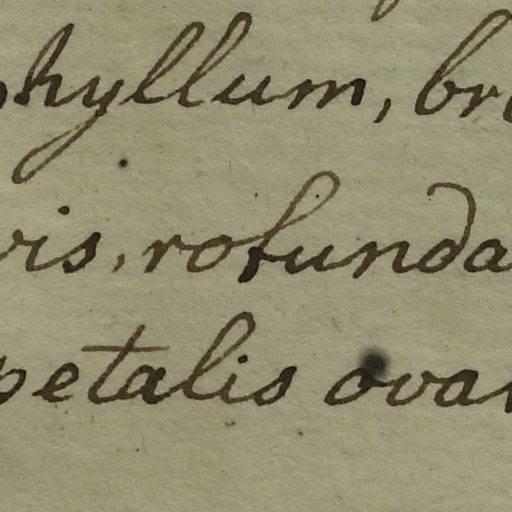 hyllum, br
vis, rotunda
petalis ova